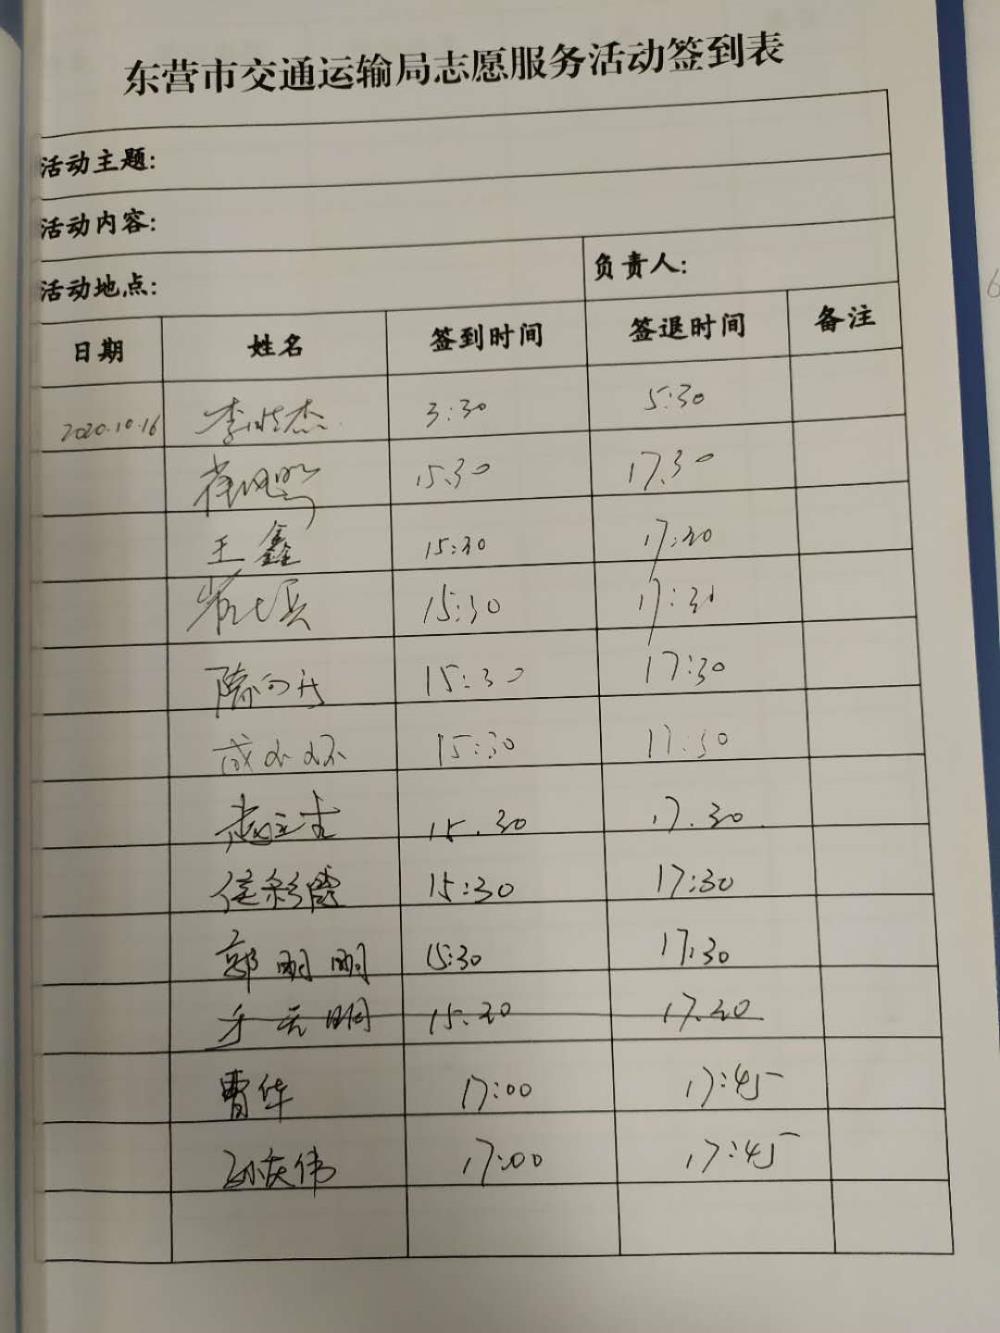 东营市交通运输局志愿服务活动签到表
活动主题:
活动内容:
活动地点: 负责人:
日期 姓名 签到时间 签退时间 备注
2020.10.16 李晓杰 3:30 5:30
15.30 17.30
王鑫 15:30 17:30
15:30 17:30
15:30 17:30
15:30 17:30
15.30 17.30
侯彩霞 15:30 17:30
郭丽丽 15:30 17:30
15.30 17.30
曹华 17:00 17:45
孙庆伟 17:00 17:45